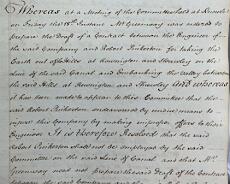 Whereas at a Meeting of the Committee held at Warwick
on Friday the 18th Instant Mr Greenway was ordered to
prepare the Draft of a Contract between the Engineer of
the said Company and Robert Pinkerton for taking the
Earth out of Hills at Rowington and Shrewley on the
Line of the said Canal and Embanking the Valley between
the said Hills at Rowington and Shrewley And whereas
it has been made appear to this Committee that the
said Robert Pinkerton endeavoured by means to
injure this Company by making improper offers to their
Engineer It is therefore Resolved that the said
Robert Pinkerton shall not be employed by the said
Committee on the said Line of Canal and that Mr
Greenway need not prepare the said Draft of the Contract
between